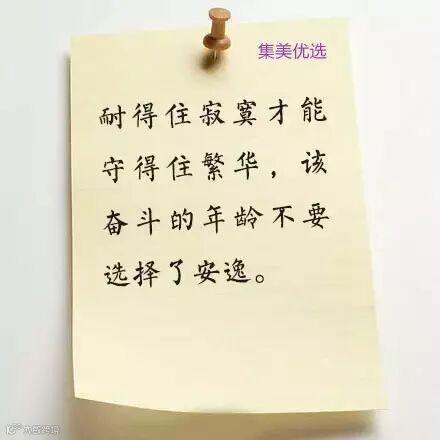 集美优选
耐得住寂寞才能
守得住繁华，该
奋斗的年龄不要
选择了安逸。
大数跨境